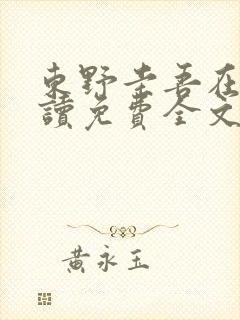 東野圭吾在
讀免費全文
黃永玉